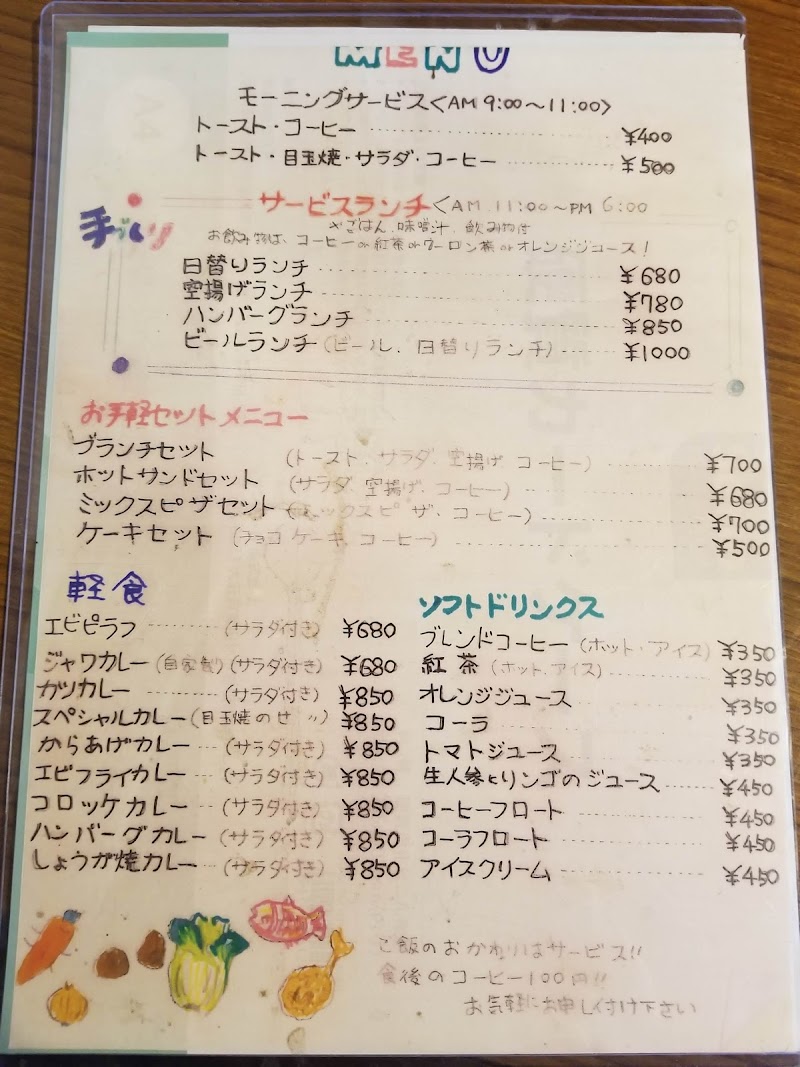 MENU
モーニングサービス<AM 9:00〜11:00>
トースト・コーヒー ¥400
トースト・目玉焼・サラダ・コーヒー ¥500
手づくり
サービスランチ<AM 11:00〜PM 6:00
ごはん、味噌汁、飲み物付
お飲み物は、コーヒー or 紅茶 or ウーロン茶 or オレンジジュース!
日替りランチ ¥680
空揚げランチ ¥780
ハンバーグランチ ¥850
ビールランチ(ビール、日替りランチ) ¥1000
お手軽セットメニュー
ブランチセット (トースト、サラダ、空揚げ コーヒー) ¥700
ホットサンドセット (サラダ、空揚げ、コーヒー) ¥680
ミックスピザセット (ミックスピザ、コーヒー) ¥700
ケーキセット (チョコケーキ、コーヒー) ¥500
軽食
エビピラフ (サラダ付き) ¥680
ジャワカレー(自家製)(サラダ付き) ¥680
カツカレー (サラダ付き) ¥850
スペシャルカレー(目玉焼のせ 〃) ¥850
からあげカレー (サラダ付き) ¥850
エビフライカレー (サラダ付き) ¥850
コロッケカレー (サラダ付き) ¥850
ハンバーグカレー (サラダ付き) ¥850
しょうが焼カレー (サラダ付き) ¥850
ソフトドリンクス
ブレンドコーヒー (ホット・アイス) ¥350
紅茶 (ホット、アイス) ¥350
オレンジジュース ¥350
コーラ ¥350
トマトジュース ¥350
生人参とリンゴのジュース ¥450
コーヒーフロート ¥450
コーラフロート ¥450
アイスクリーム ¥450
ご飯のおかわりはサービス!!
食後のコーヒー100円!!
お気軽にお申し付け下さい